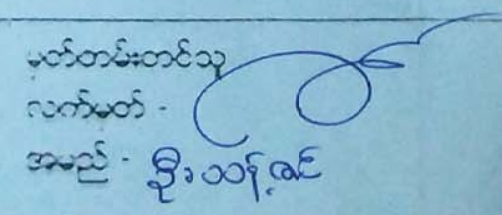 မှတ်တမ်းတင်သူ
လက်မှတ် -
အမည် - ဦးသန့်ဇင်